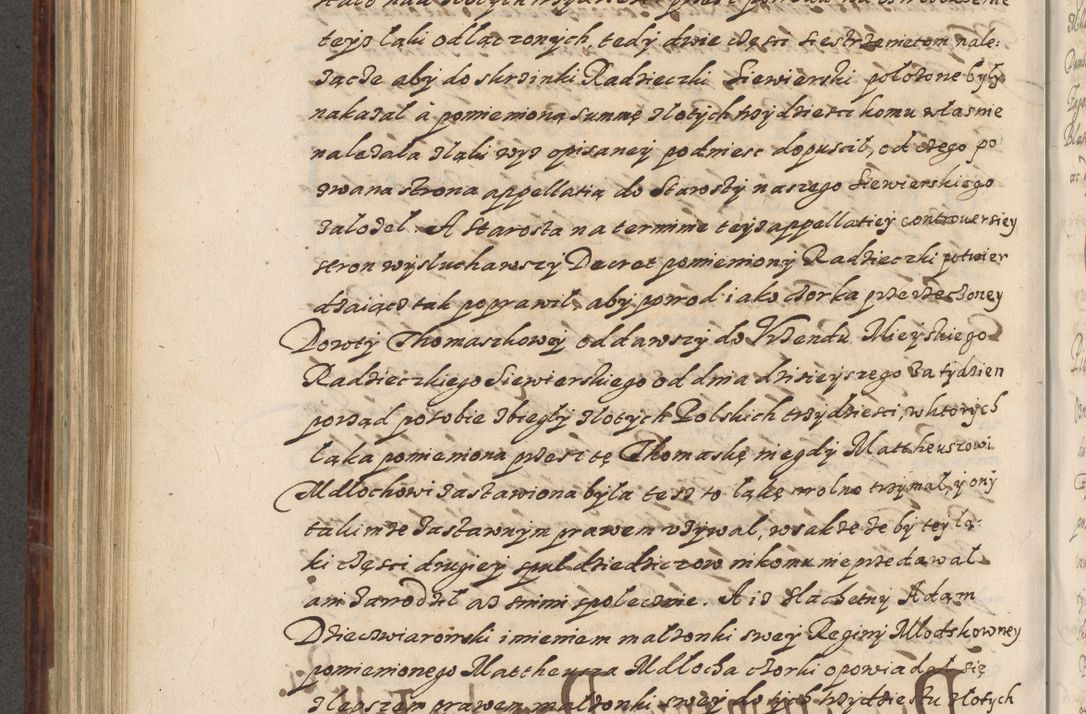 teyz łąki odłączonych, tedy dwie części siestrzenicom nale:
zącze aby do skrzinki Radzieczki Siewierski położone były
nakazał à pomienioną summę złotych trzydzieści komu własnie
nalezała z łąki wyz opisaney podniesc dopuscił, od czego po
zwana strona appellatią do Starosty naszego Siewierskiego
założeł. A Starosta na terminie teyz appellatiey controuersiey
stron wysłuchawszy Decret pomieniony Radzieczki potwier
dzaiącz tak poprawił, aby powod iako czorka przerzeczoney
Doroty Thomaszkowey oddawszy do Vrzendu Mieyskiego
Radzieczkiego Siewierskiego od dnia dzisieyszego za tydzien
porząd po sobie zbiegły złotych Polskich trzydziesci, w ktorych
łąka pomieniona przesz tę Thomaskę niegdy Mattheuszowi
Mdłochowi zastawiona była tesz to łąkę wolno trzymał, y ony
takimze zastawnym prawem vzywał, wsakze ze by tey łą-
ki części drugiey spul dziedziczow nikomu nie przedawał
ani zawodził az s nimi społecznie. A iz slachetny Adam
Dzieczwiarowski imieniem małzonki swey Reginy Młodskowney
pomienionego Mattheusza Mdłocha czorki opowiadał się
z lepszem prawem małzonki swey do tych trzydziestu złotych